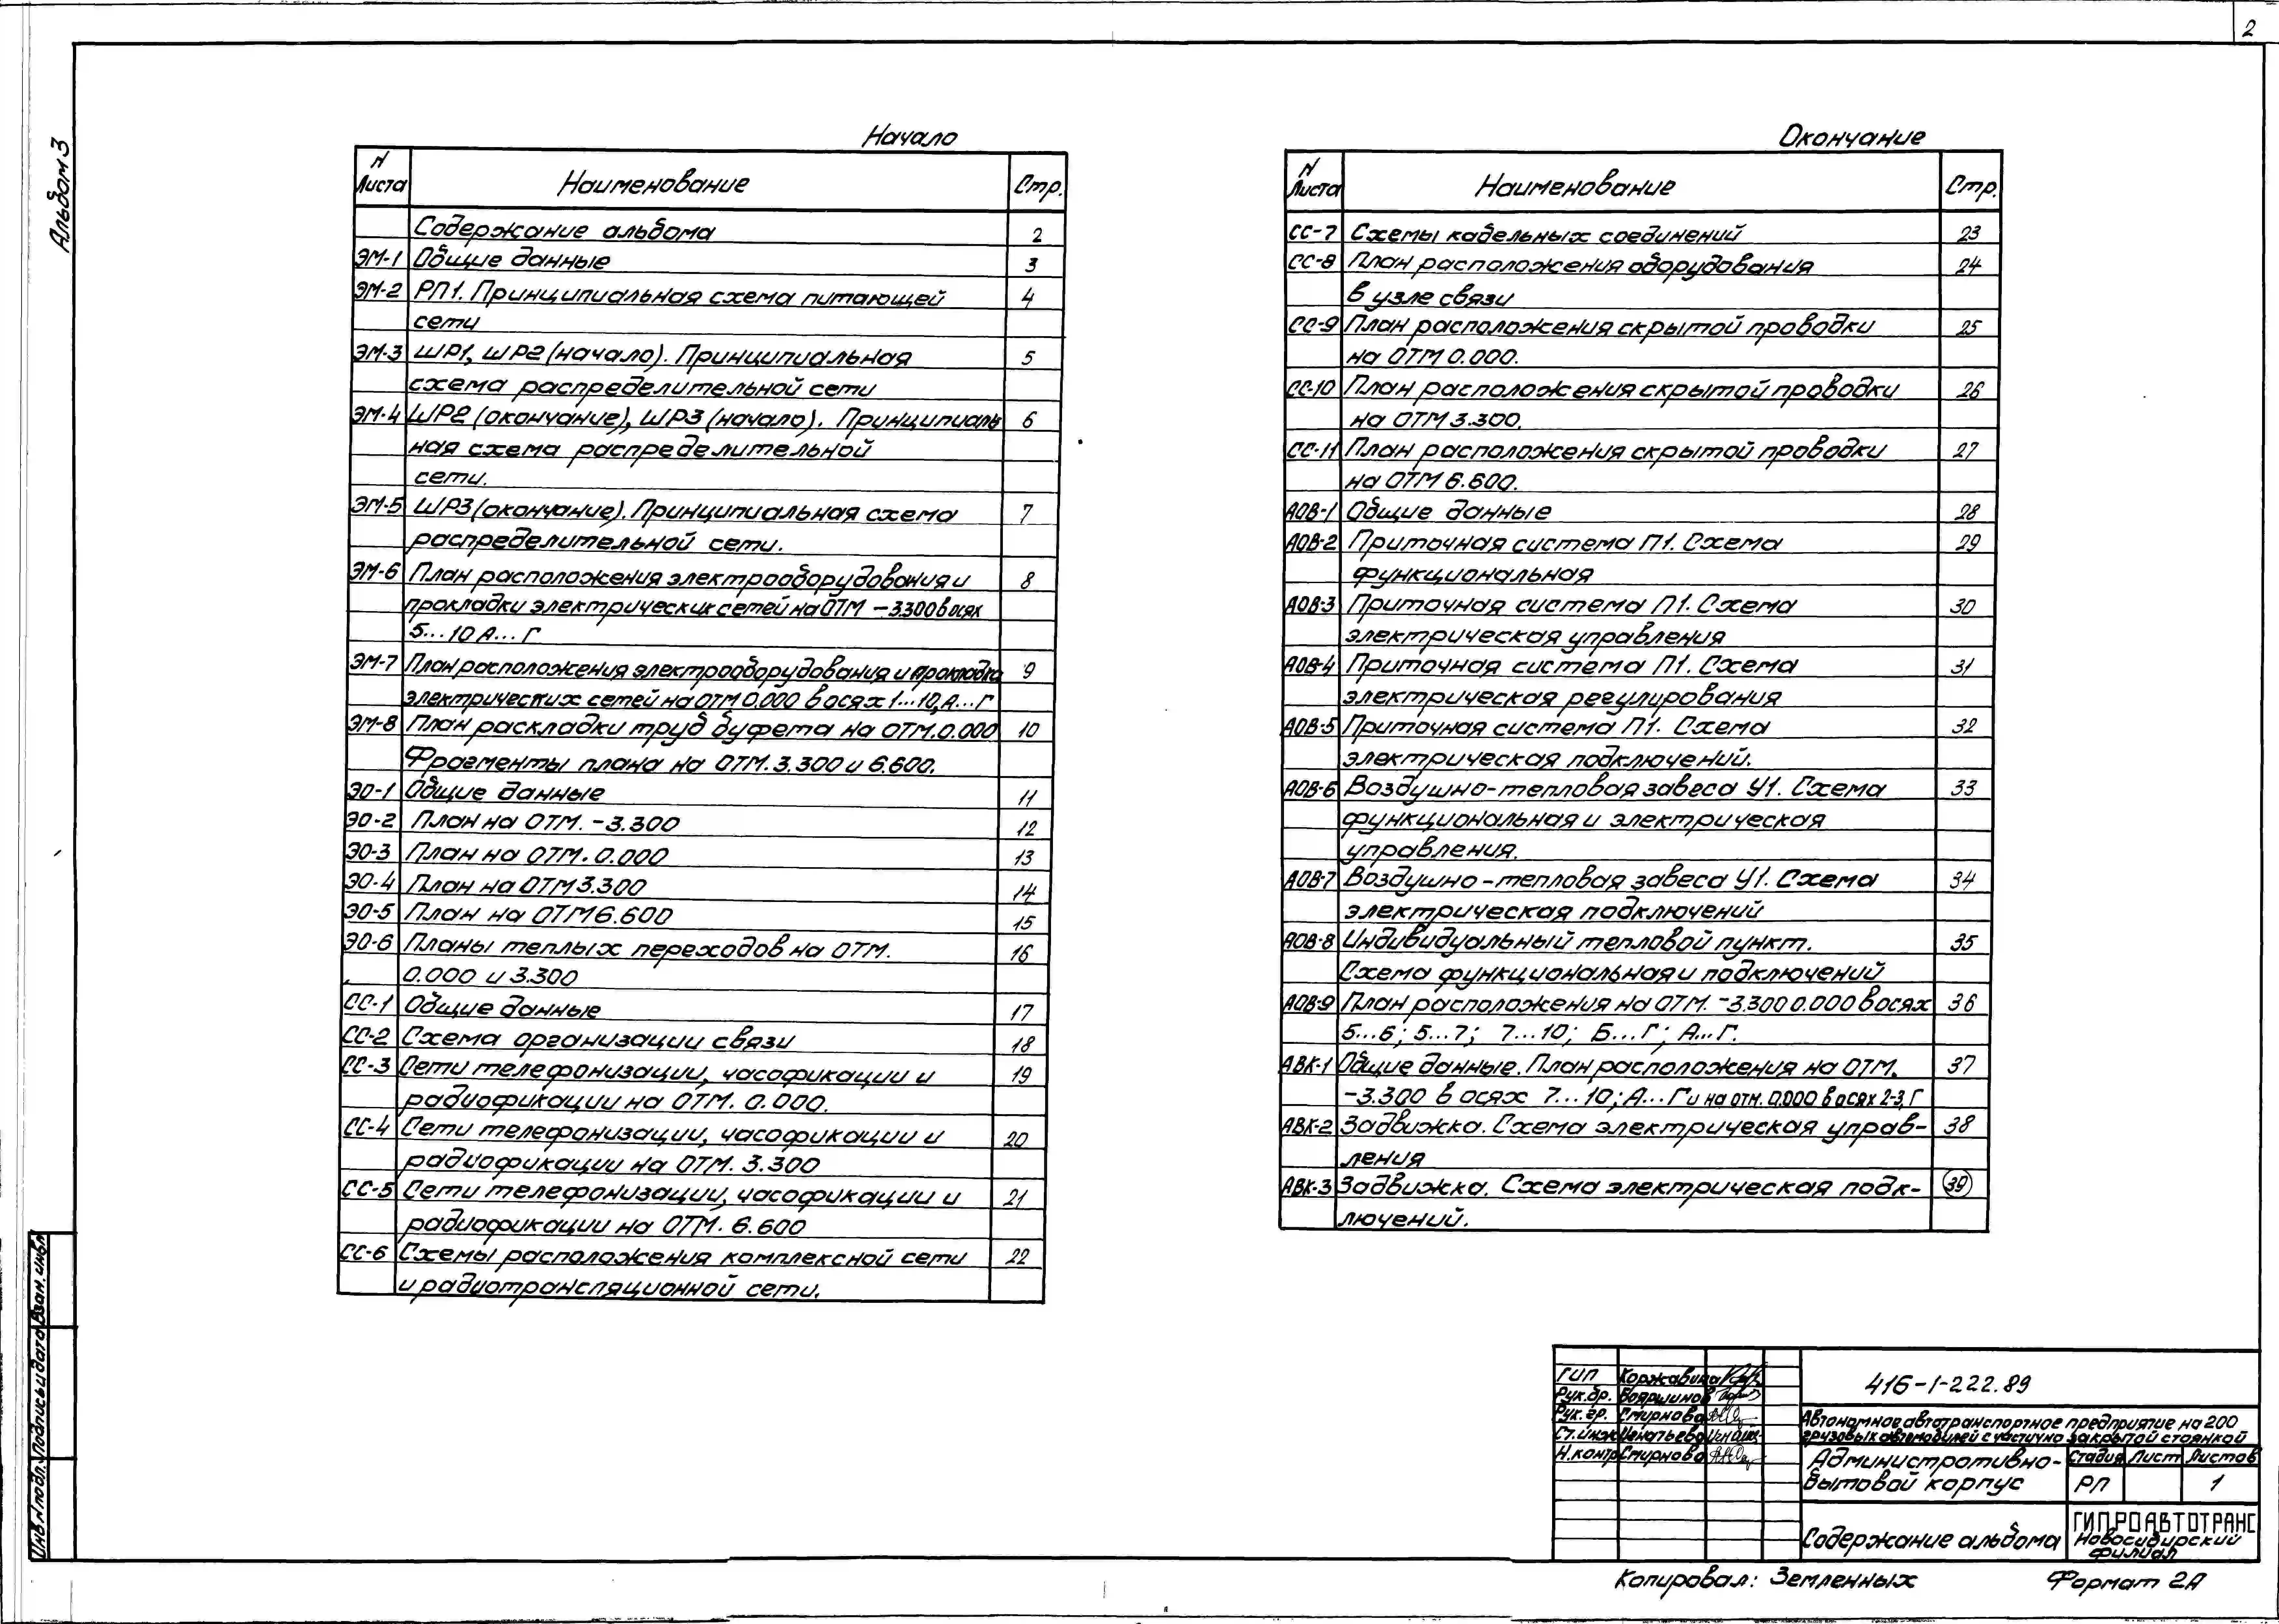 2
Альбом 3
Начало
N Листа Наименование Стр.
Содержание альбома 2
ЭМ-1 Общие данные 3
ЭМ-2 РП1. Принципиальная схема питающей 4
сети
ЭМ-3 ШР1, ШР2 (начало). Принципиальная 5
схема распределительной сети
ЭМ-4 ШР2 (окончание), ШР3 (начало). Принципиаль 6
ная схема распределительной
сети.
ЭМ-5 ШР3 (окончание). Принципиальная схема 7
распределительной сети.
ЭМ-6 План расположения электрооборудования и 8
прокладки электрических сетей на ОТМ -3.300 в осях
5...10 А...Г
ЭМ-7 План расположения электрооборудования и прокладка 9
электрических сетей на ОТМ 0.000 в осях 1...10, А...Г
ЭМ-8 План раскладки труб буфета на ОТМ. 0.000 10
Фрагменты плана на ОТМ. 3.300 и 6.600.
ЭО-1 Общие данные 11
ЭО-2 План на ОТМ. -3.300 12
ЭО-3 План на ОТМ. 0.000 13
ЭО-4 План на ОТМ 3.300 14
ЭО-5 План на ОТМ 6.600 15
ЭО-6 Планы теплых переходов на ОТМ. 16
0.000 и 3.300
СС-1 Общие данные 17
СС-2 Схема организации связи 18
СС-3 Сети телефонизации, часофикации и 19
радиофикации на ОТМ. 0.000.
СС-4 Сети телефонизации, часофикации и 20
радиофикации на ОТМ. 3.300
СС-5 Сети телефонизации, часофикации и 21
радиофикации на ОТМ. 6.600
СС-6 Схемы расположения комплексной сети 22
и радиотрансляционной сети.
Окончание
N Листа Наименование Стр.
СС-7 Схемы кабельных соединений 23
СС-8 План расположения оборудования 24
в узле связи
СС-9 План расположения скрытой проводки 25
на ОТМ 0.000.
СС-10 План расположения скрытой проводки 26
на ОТМ 3.300.
СС-11 План расположения скрытой проводки 27
на ОТМ 6.600.
АОВ-1 Общие данные 28
АОВ-2 Приточная система П1. Схема 29
функциональная
АОВ-3 Приточная система П1. Схема 30
электрическая управления
АОВ-4 Приточная система П1. Схема 31
электрическая регулирования
АОВ-5 Приточная система П1. Схема 32
электрическая подключений.
АОВ-6 Воздушно-тепловая завеса У1. Схема 33
функциональная и электрическая
управления.
АОВ-7 Воздушно-тепловая завеса У1. Схема 34
электрическая подключений
АОВ-8 Индивидуальный тепловой пункт. 35
Схема функциональная и подключений
АОВ-9 План расположения на ОТМ. -3.300 0.000 в осях 36
5...6; 5...7; 7...10; Б...Г; А...Г.
АВК-1 Общие данные. План расположения на ОТМ. 37
-3.300 в осях 7...10; А...Г и на отм. 0.000 в осях 2-3, Г
АВК-2 Задвижка. Схема электрическая управ- 38
ления
АВК-3 Задвижка. Схема электрическая подк- 39
лючений.
ГИП Коржавина
Рук.бр. Бояршинов
Рук.гр. Смирнова
Ст.инж Игнатьева
Н.контр Смирнова
416-1-222.89
Автономное автотранспортное предприятие на 200
грузовых автомобилей с частично закрытой стоянкой
Административно-
бытовой корпус
Стадия Лист Листов
РП 1
Содержание альбома
ГИПРОАВТОТРАНС
Новосибирский
филиал
Копировал: Земленных Формат 2А
Инв.N подл. Подпись и дата Взам. инв.